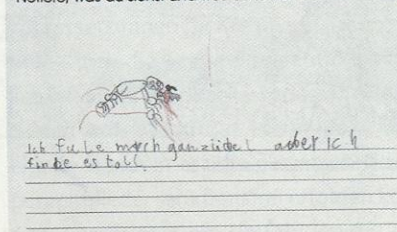 Ich fule mich ganzübel aber ich
finde es toll